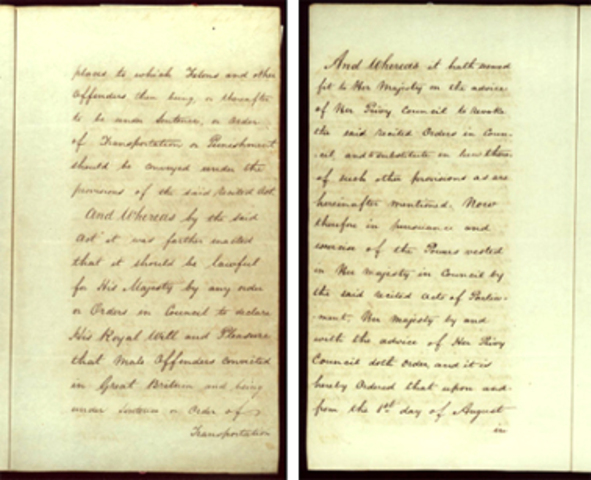 places to which Felons and other
Offenders then being or thereafter
to be under Sentence, or Order
of Transportation or Punishment
should be conveyed under the
provisions of the said recited Act
And Whereas by the said
Act it was further enacted
that it should be lawful
for His Majesty by any order
or Orders in Council to declare
His Royal Will and Pleasure
that Male Offenders convicted
in Great Britain and being
under Sentence or Order of
Transportation
And Whereas it hath seemed
fit to Her Majesty on the advice
of Her Privy Council to revoke
the said recited Orders in Coun-
-cil, and to substitute in lieu there-
of such other provisions as are
hereinafter mentioned. Now
therefore in pursuance and
exercise of the Powers vested
in Her Majesty in Council by
the said recited Acts of Parlia-
-ment, Her Majesty by and
with the advice of Her Privy
Council doth order, and it is
hereby Ordered that upon and
from the 1st day of August
in